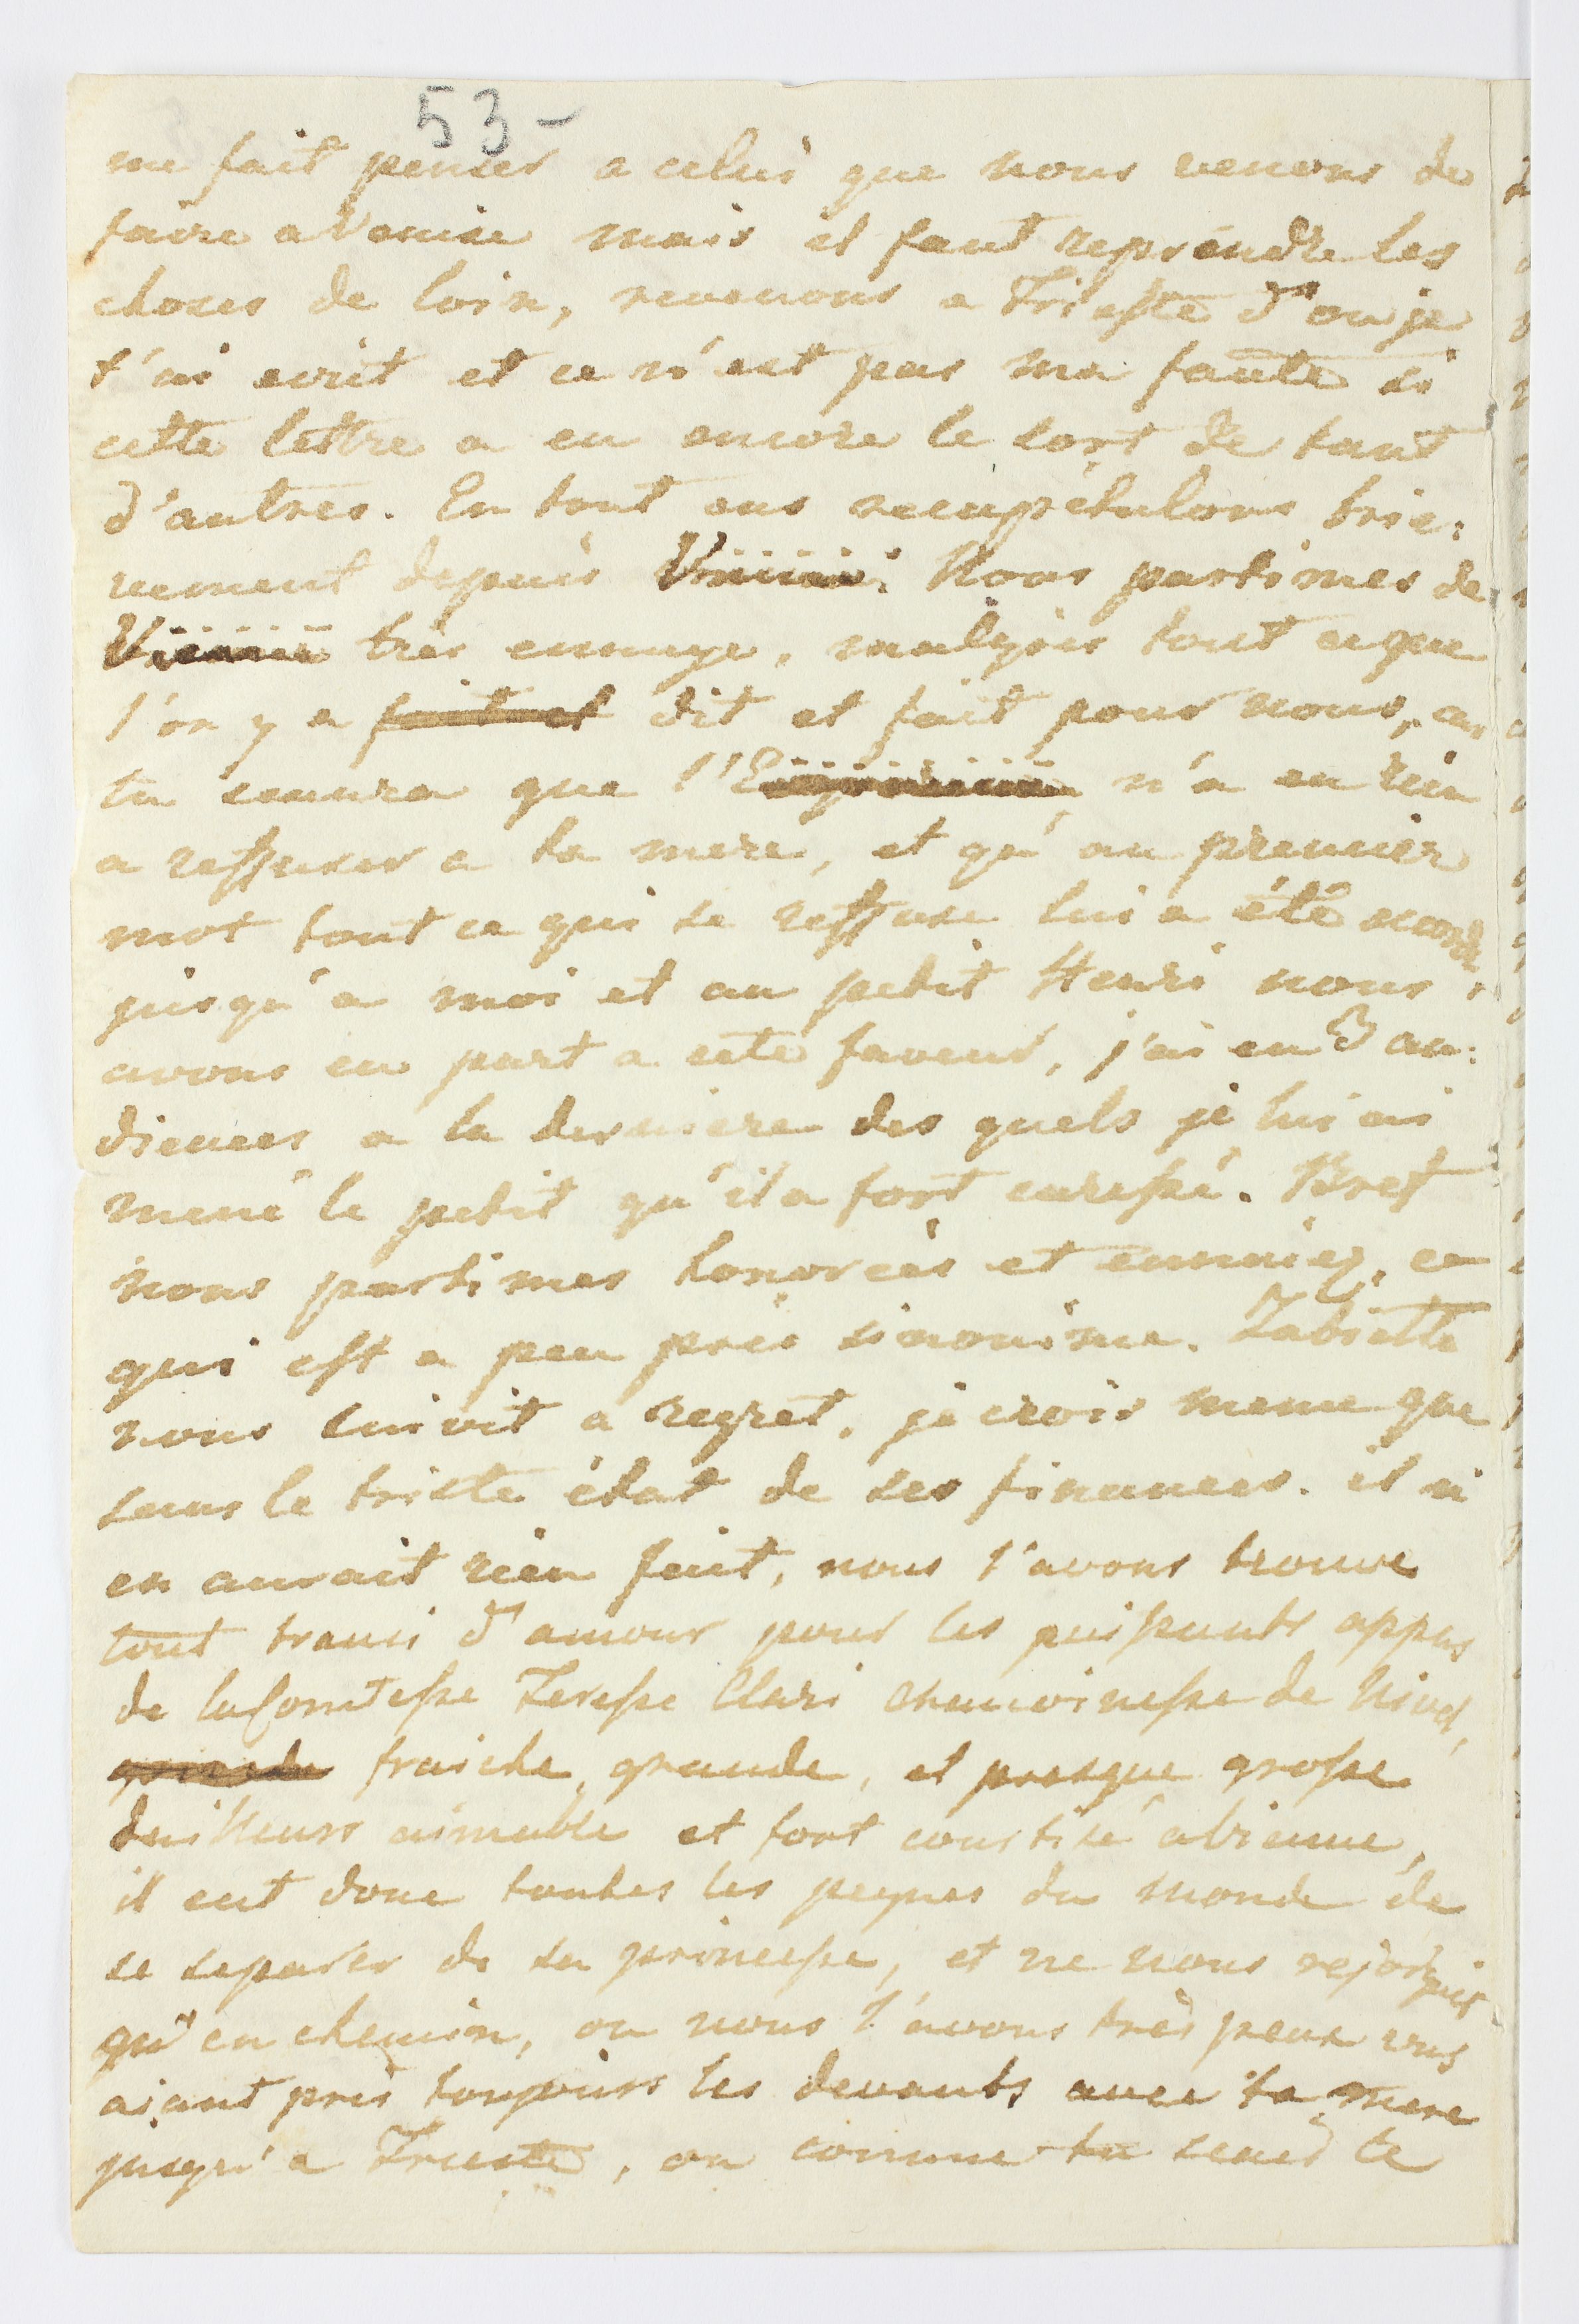 53-
me fait penser a celui que nous venons de
faire a Venise mais il faut reprendre les
choses de loin, revenons a Trieste d'ou je
t'ai ecrit et ce n'est pas ma faute si
cette lettre a eu encore le sort de tant
d'autres. En tout cas recapitulons brie:
vement depuis Nous partimes de
très ennuye, malgrés tout ce que
l'on y a fait et dit et fait pour nous, car
tu scaura que n'a eu rien
a reffuser a ta mere, et qu'au premier
mot tout ce qui se reffuse lui a été accordé
jusqu'a moi et au petit Henri nous
avons eu part a cete faveur, j'ai eu 3 au:
diences a la derniere des quels je lui ai
mené le petit qu'il a fort caressé. Bref
nous partimes honorées et ennuiez, ce
qui est a peu près sinonime. Zabiette
nous suivit a regret, je crois meme que
sans le triste état de ses finances. il n'
en aurait rien fait, nous l'avons trouve
tout transi d'amour pour les puissants appas
de la Comtesse Teresse Clari chanoinesse de Nivel,
grande fraiche, grande, et presque grosse
dailleurs aimable et fort courtisé a Vienne,
il eut donc toutes les peynes du monde de
se separer de sa princesse, et ne nous rejoignit
qu'en chemin, ou nous l'avons très peux vus
aiant pris toujours les devants avec ta mere
jusqu'a Trieste, ou comme tu scais le